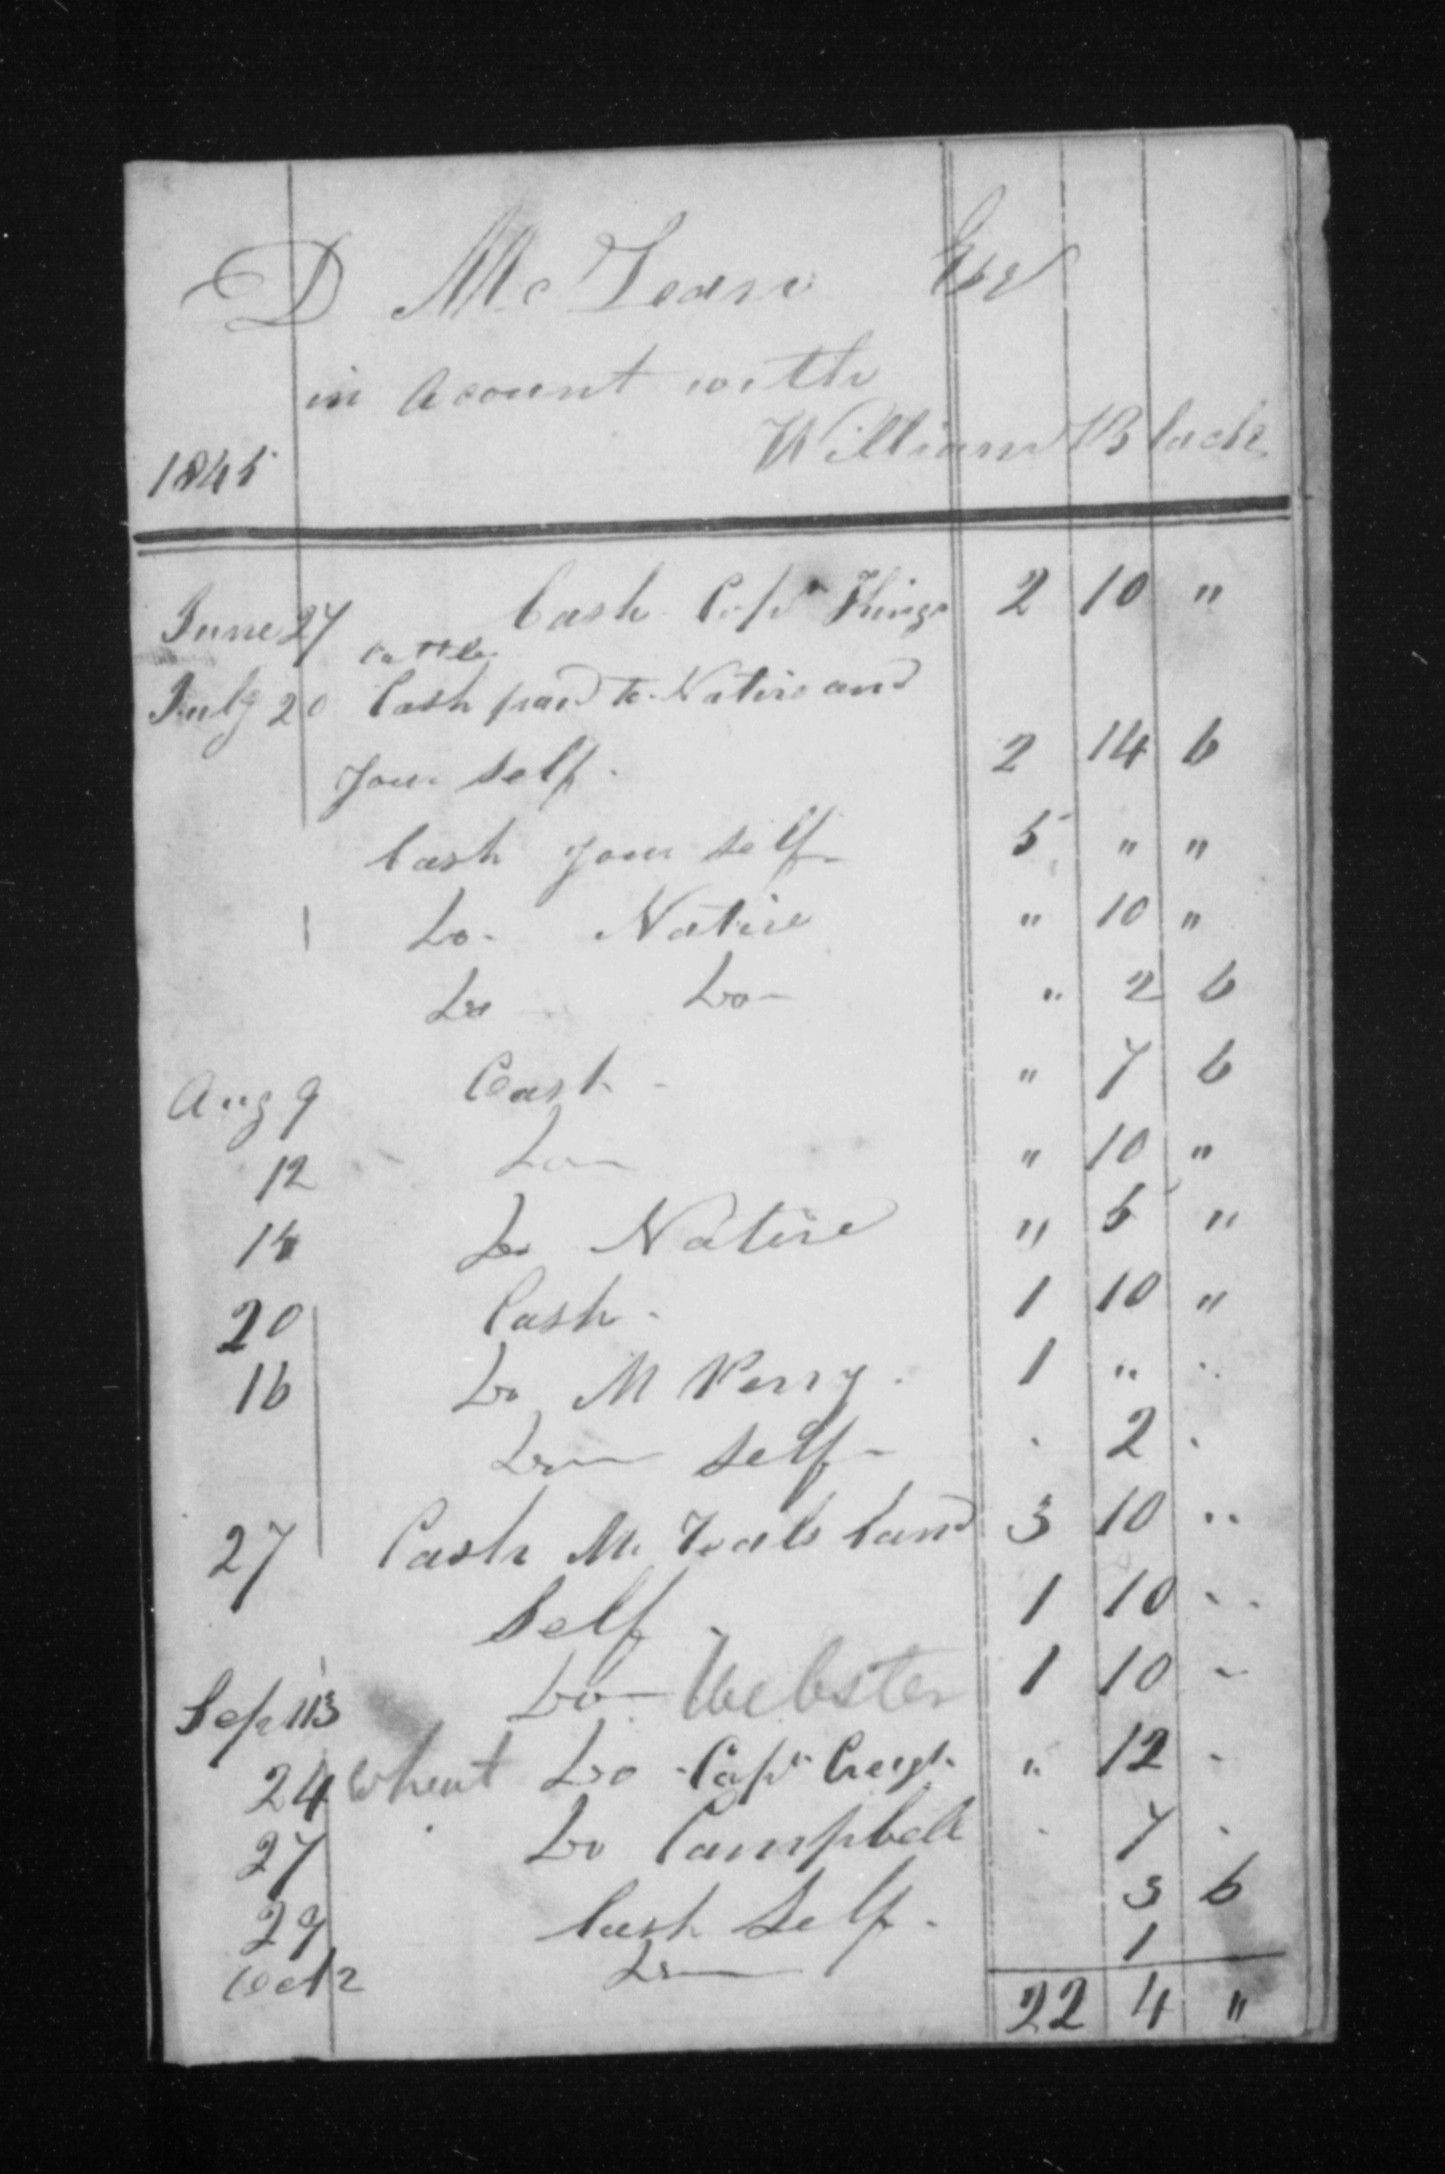 D McLean Esqr
in Acount with
William Black
1845
June 27 Cash Capt Kings 2 10 "
cattle
July 20 Cash paid to Native and
your self. 2 14 6
Cash your self 5 " "
Do. Native " 10 "
Do Do " 2 6
Aug 9 Cash " 7 6
12 Do " 10 "
14 Do Native " 5 "
20 Cash. 1 10 "
16 Do M Perry. 1 "
Do self 2
27 Cash Mc 3 10 "
Self. 1 10
Sep 13 Do Webster 1 10
24 Wheat Do Capt " 12
27 Do Campbell 7
29 Cash Self. 3 6
Oct 2 Do 1
22 4 "